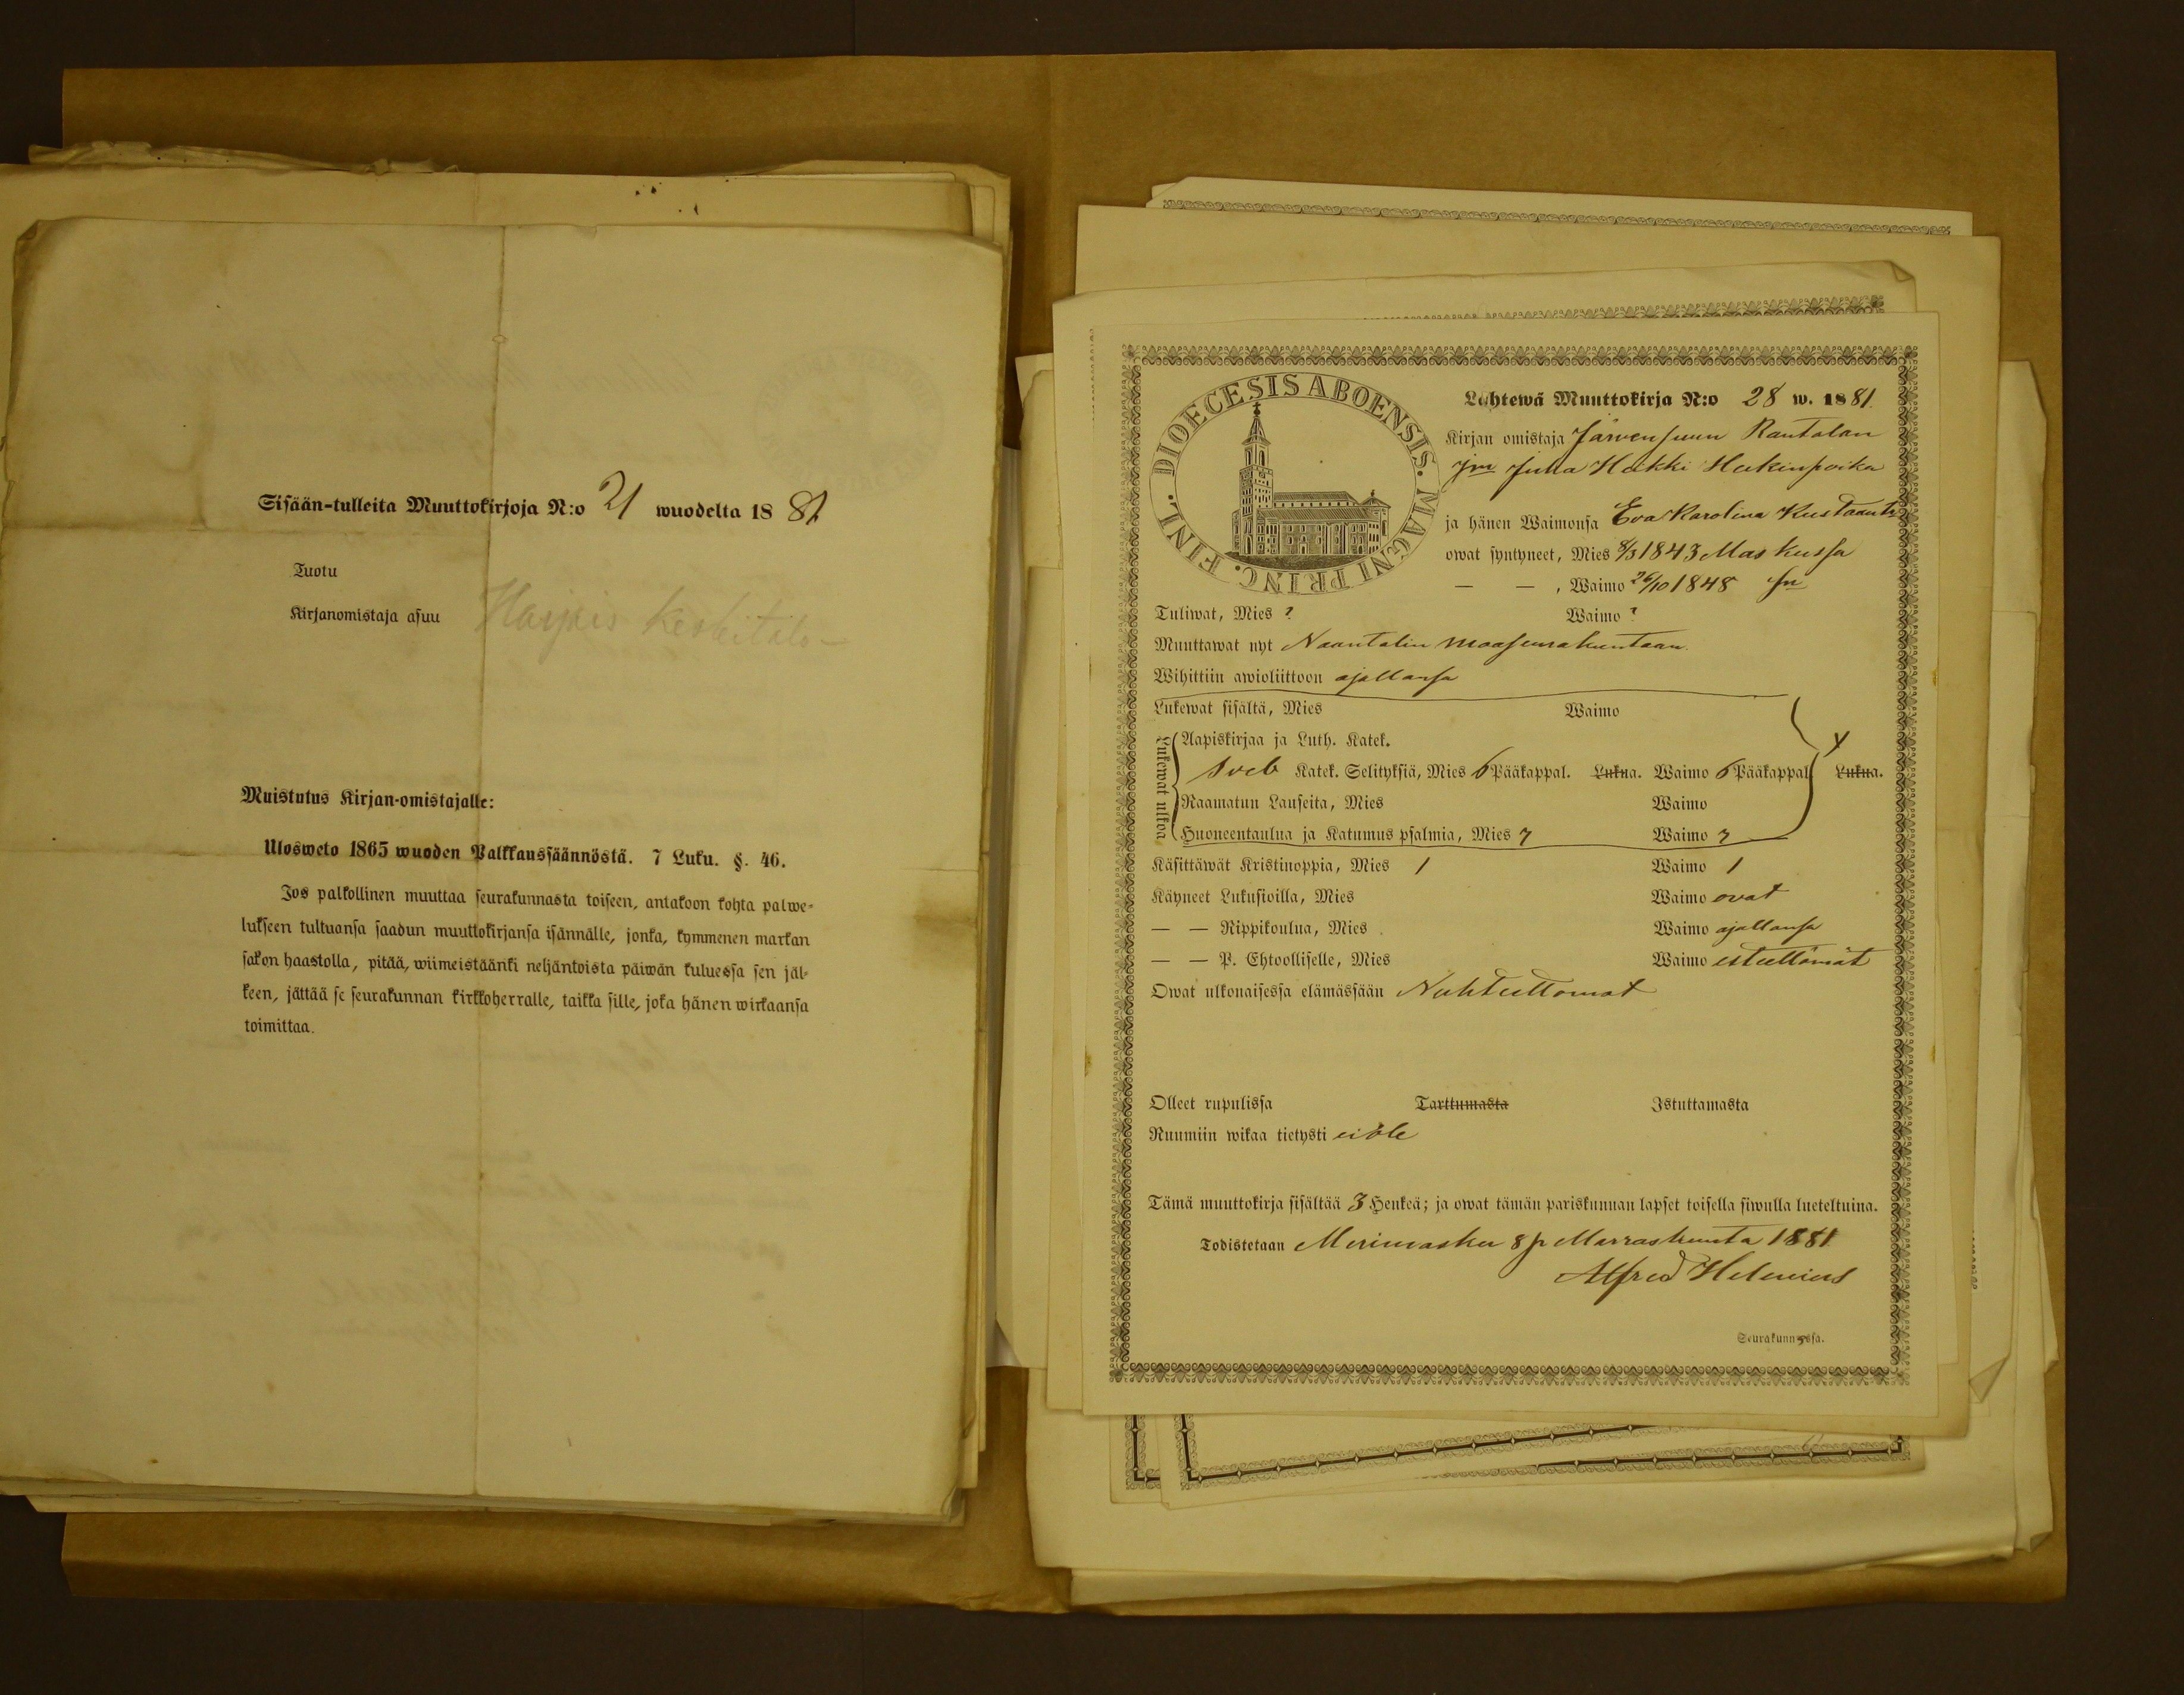 Sisään-tulleita Muuttokirjoja N:o 21 wuodelta 1881
Tuotu
Kirjanomistaja asuu Harjais Keskitalo –
Muistutus Kirjan-omistajalle:
Ulosweto 1865 wuoden Palkkaussäännöstä. 7 Luku. §. 46.
Jos palkollinen muuttaa seurakunnasta toiseen, antakoon kohta palwe-
lukseen tultuansa saadun muuttokirjansa isännälle, jonka, kymmenen markan
sakon haastolla, pitää, wiimeistäänki neljäntoista päiwän kuluessa sen jäl-
keen, jättää se seurakunnan kirkkoherralle, taikka sille, joka hänen wirkaansa
toimittaa.
DIOECESIS ABOENSIS. MAGNI PRINC. FINL.
Lähtewä Muuttokirja N:o 28 w. 1881.
Kirjan omistaja Järvensuun Rantalan
Juha Heikki Heikinpoika
ja hänen Waimonsa Eva Karolina Kustaantr
owat syntyneet, Mies 8/3 1843 Maskussa
— — , Waimo 26/10 1848 sm
Tuliwat, Mies ? Waimo ?
Muuttawat nyt Naantalin maaseurakuntaan.
Wihittiin awioliittoon ajallansa
Lukewat sisältä, Mies Waimo
Lukewat ulkoa
Aapiskirjaa ja Luth. Katek.
Sveb Katek. Selityksiä, Mies 6 Pääkappal. Lukua. Waimo 6 Pääkappal. Lukua.
Raamatun Lauseita, Mies Waimo
Huoneentaulua ja Katumus psalmia, Mies 7 Waimo 7
Käsittäwät Kristinoppia, Mies 1 Waimo 1
Käyneet Lukusioilla, Mies Waimo ovat
— — Rippikoulua, Mies Waimo ajallansa
— — P. Ehtoolliselle, Mies Waimo esteettömät
Owat ulkonaisessa elämässään Nuhteettomat
Olleet rupulissa Tarttumasta Istuttamasta
Ruumiin wikaa tietysti ei ole
Tämä muuttokirja sisältää 3 Henkeä; ja owat tämän pariskunnan lapset toisella siwulla lueteltuina.
Todistetaan Merimasku 8 p Marraskuuta 1881
Alfred Helenius
Seurakunnassa.